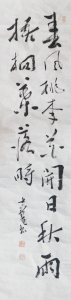 春風桃李花開日秋雨
梧桐葉落時